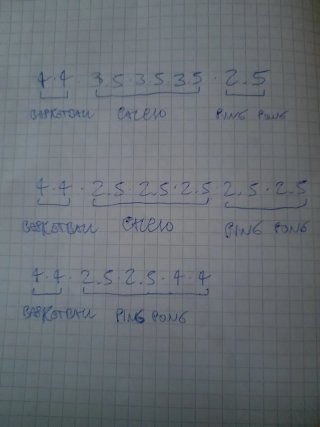 4·4 · 3·5·3·5·3·5 · 2·5
BASKETBALL CALCIO PING PONG
4·4 · 2·5·2·5·2·5 · 2·5·2·5
BASKETBALL CALCIO PING PONG
4·4 · 2·5·2·5·4·4
BASKETBALL PING PONG